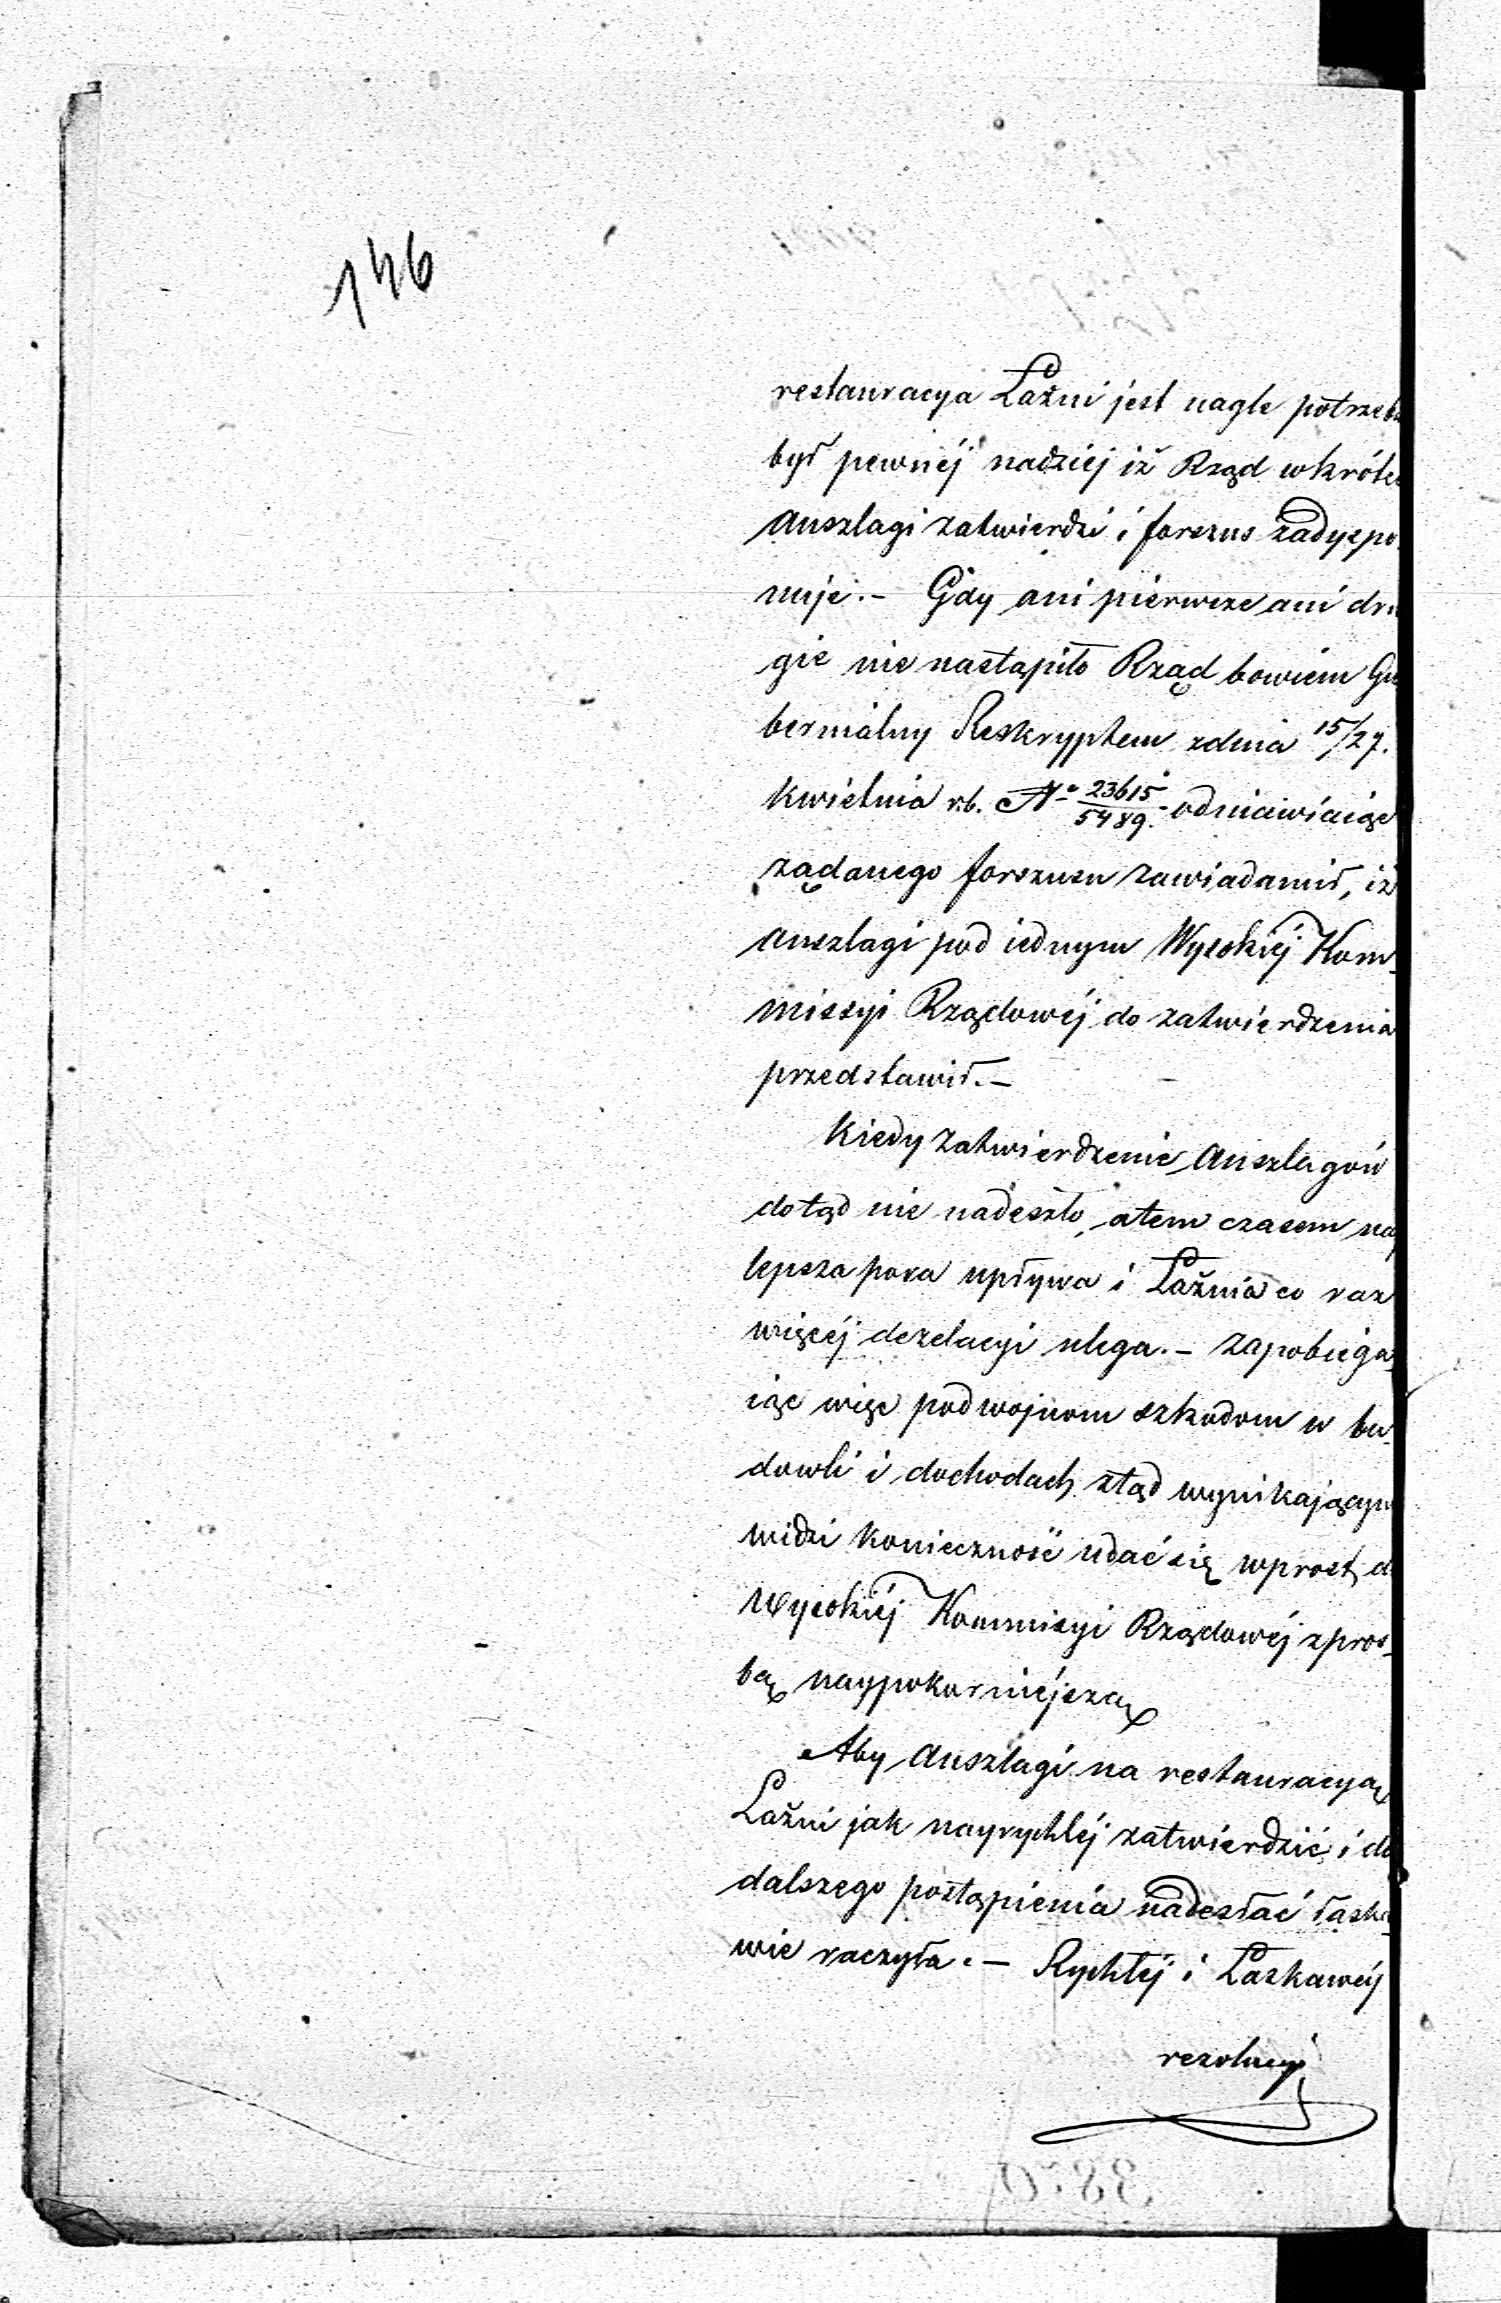 146
restauracya Łaźni jest nagle potrzeb
był pewnéj nadziej iż Rząd wkróte
Anszlagi zatwierdzi i forszus zadyspo-
nuje.- Gdy ani pierwsze ani dru
gie nie nastąpiło Rząd bowiem Gu
bernialny Reskryptem zdnia 15/27.
kwietnia rb. No 23615/5489. odmawiaiąc
żądanego forszusu zawiadamił, iż
anszlagi pod iednym Wysokiéj Kom-
missyi Rządowéj do zatwierdzenia
przedstawił.-
Kiedy zatwierdzenie Anszlagów
dotąd nie nadeszło, atem czasem nay
lepsza pora upływa i Łaźnia co raz
więcéj dezelacyi ulega.- Zapobiega
iąc więc podwojnom szkodom w bu-
dowli i dochodach ztąd wynikającym
widzi konieczność udać się wprost d
Wysokiéj Kommisyi Rządowéj zproś-
bą naypokorniéjszą
Aby Anszlagi na restauracyą
Łaźni jak nayrychléj zatwierdzić i do
dalszego postąpienia nadesłać łaska
wie raczyła.- Rychłéj i Łaskawéj
rezolucyi